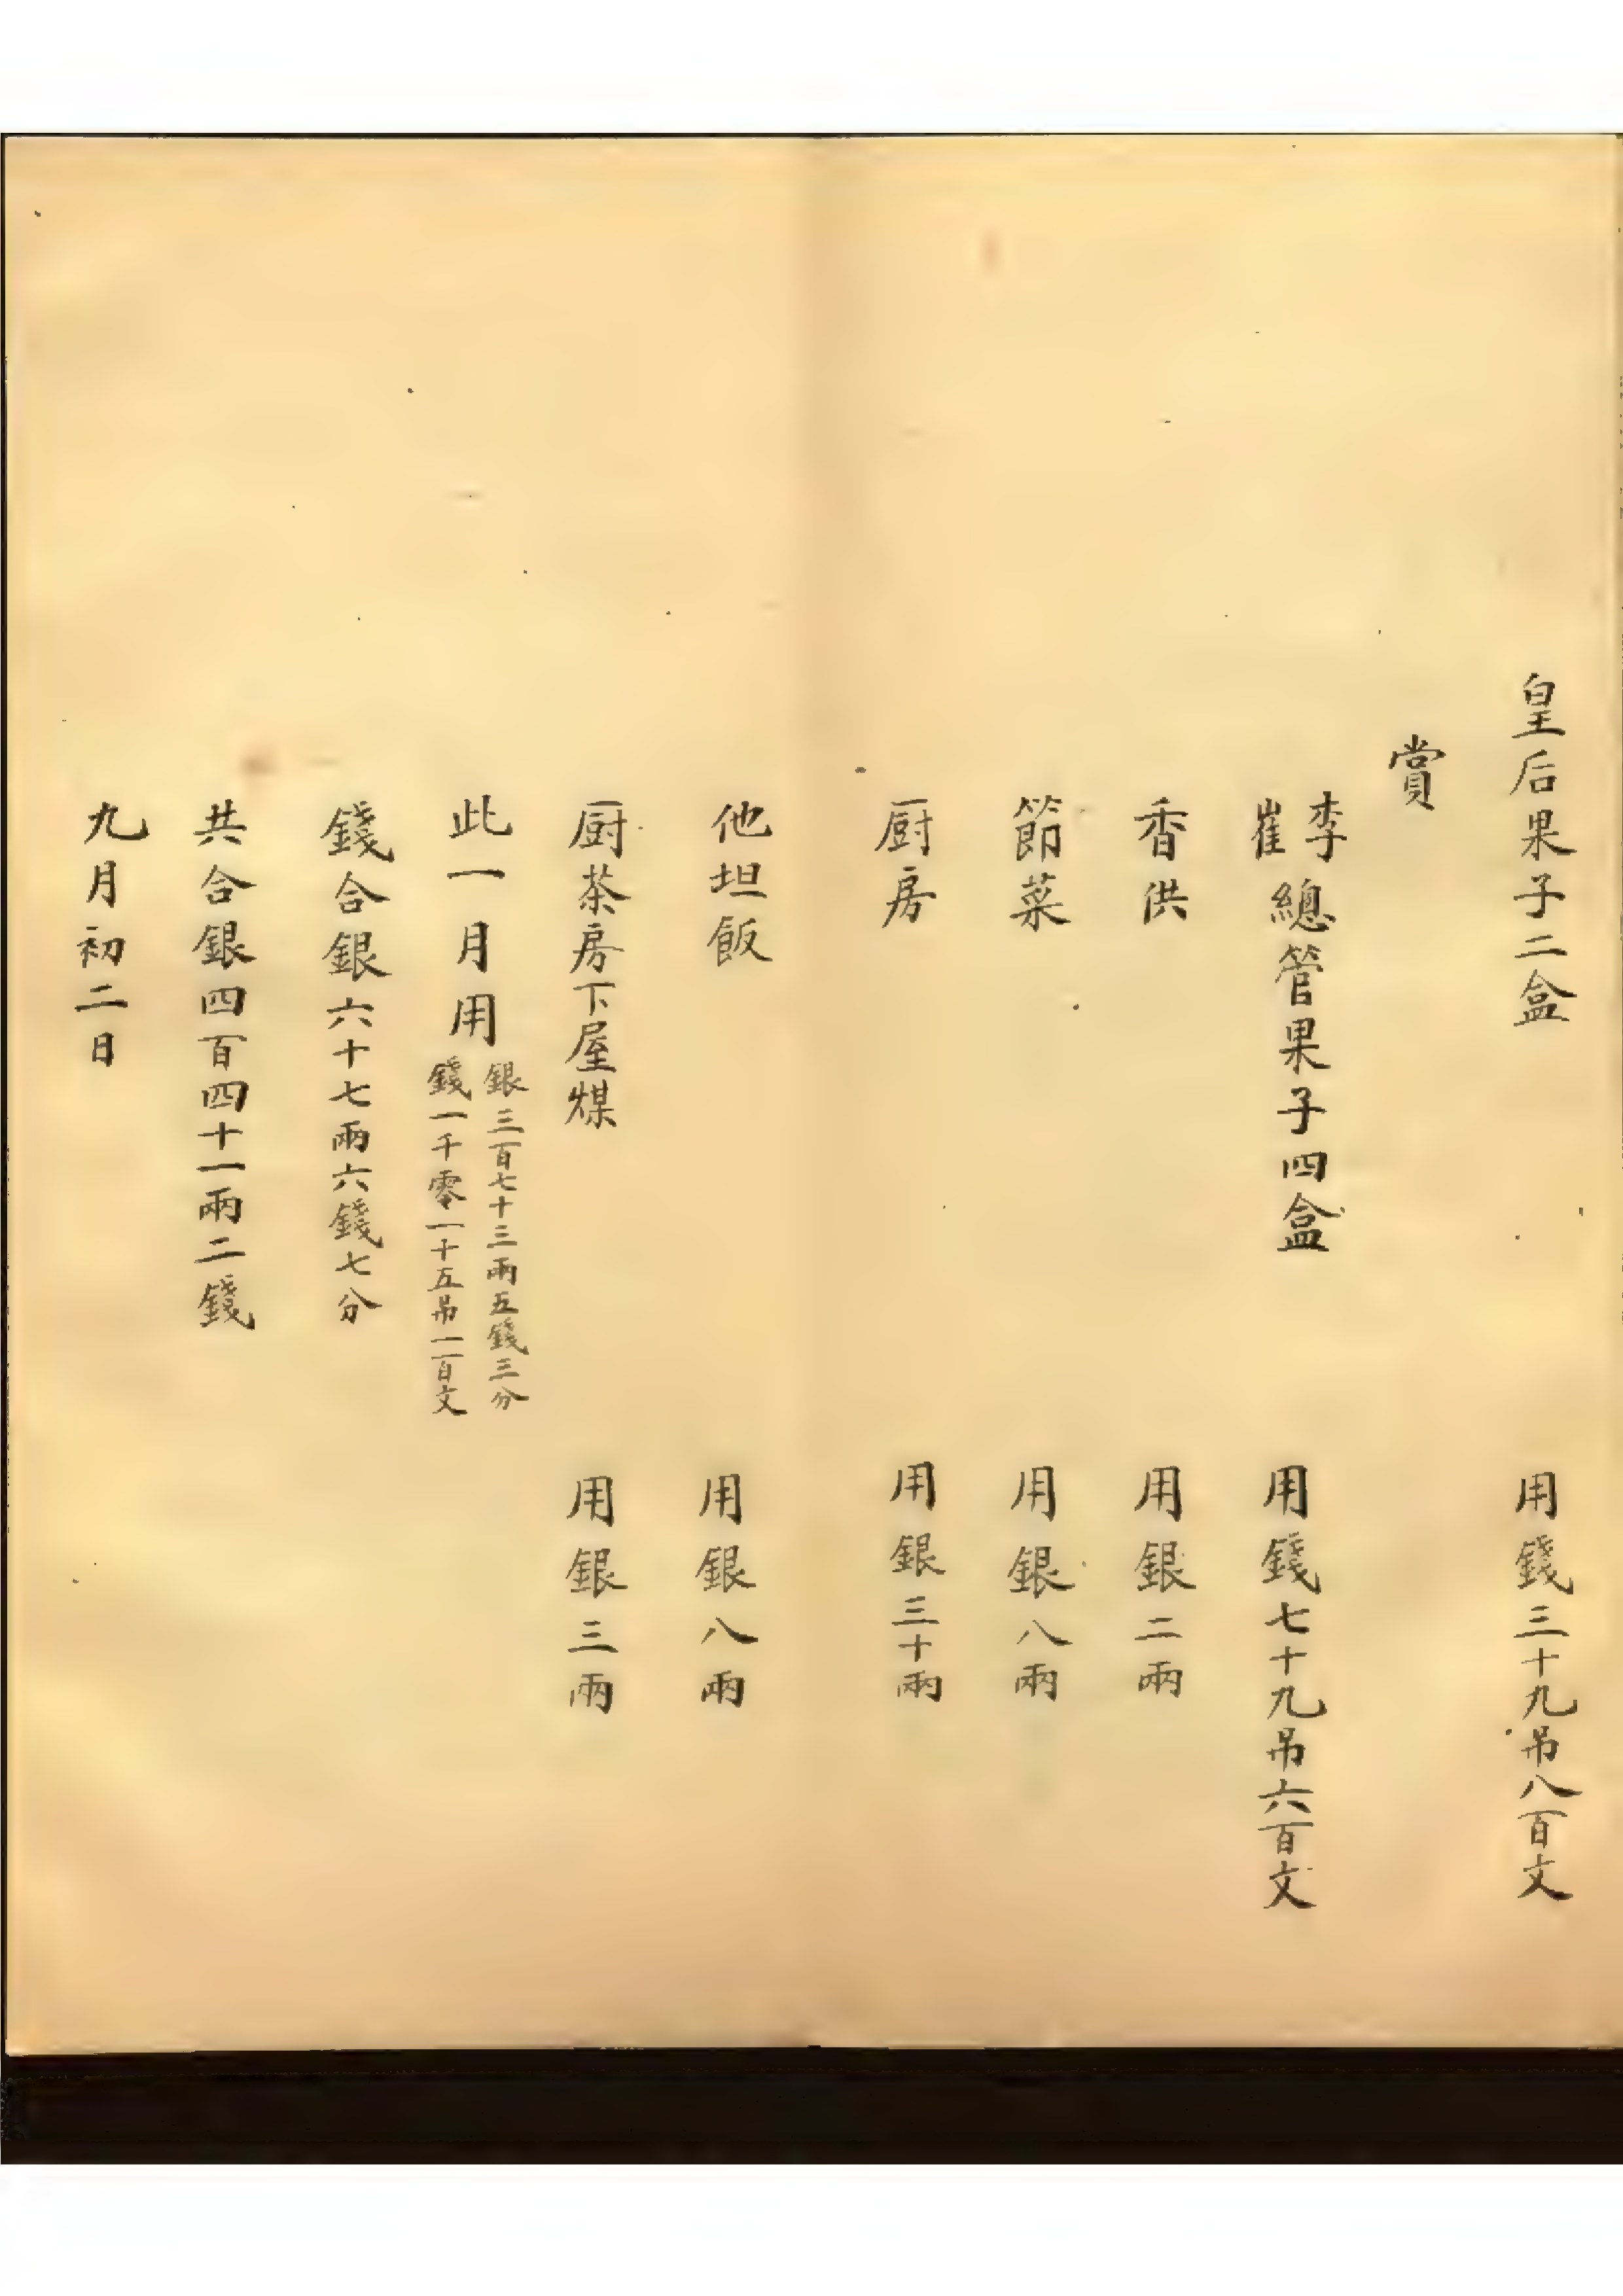 皇后果子二盒 用錢三十九吊八百文
賞
李崔總管果子四盒 用錢七十九吊六百文
香供 用銀二兩
節菜 用銀八兩
厨房 用銀三十兩
他坦飯 用銀八兩
厨茶房下屋煤 用銀三兩
此一月用
銀三百七十三兩五錢三分
錢一千零一十五吊一百文
錢合銀六十七兩六錢七分
共合銀四百四十一兩二錢
九月初二日